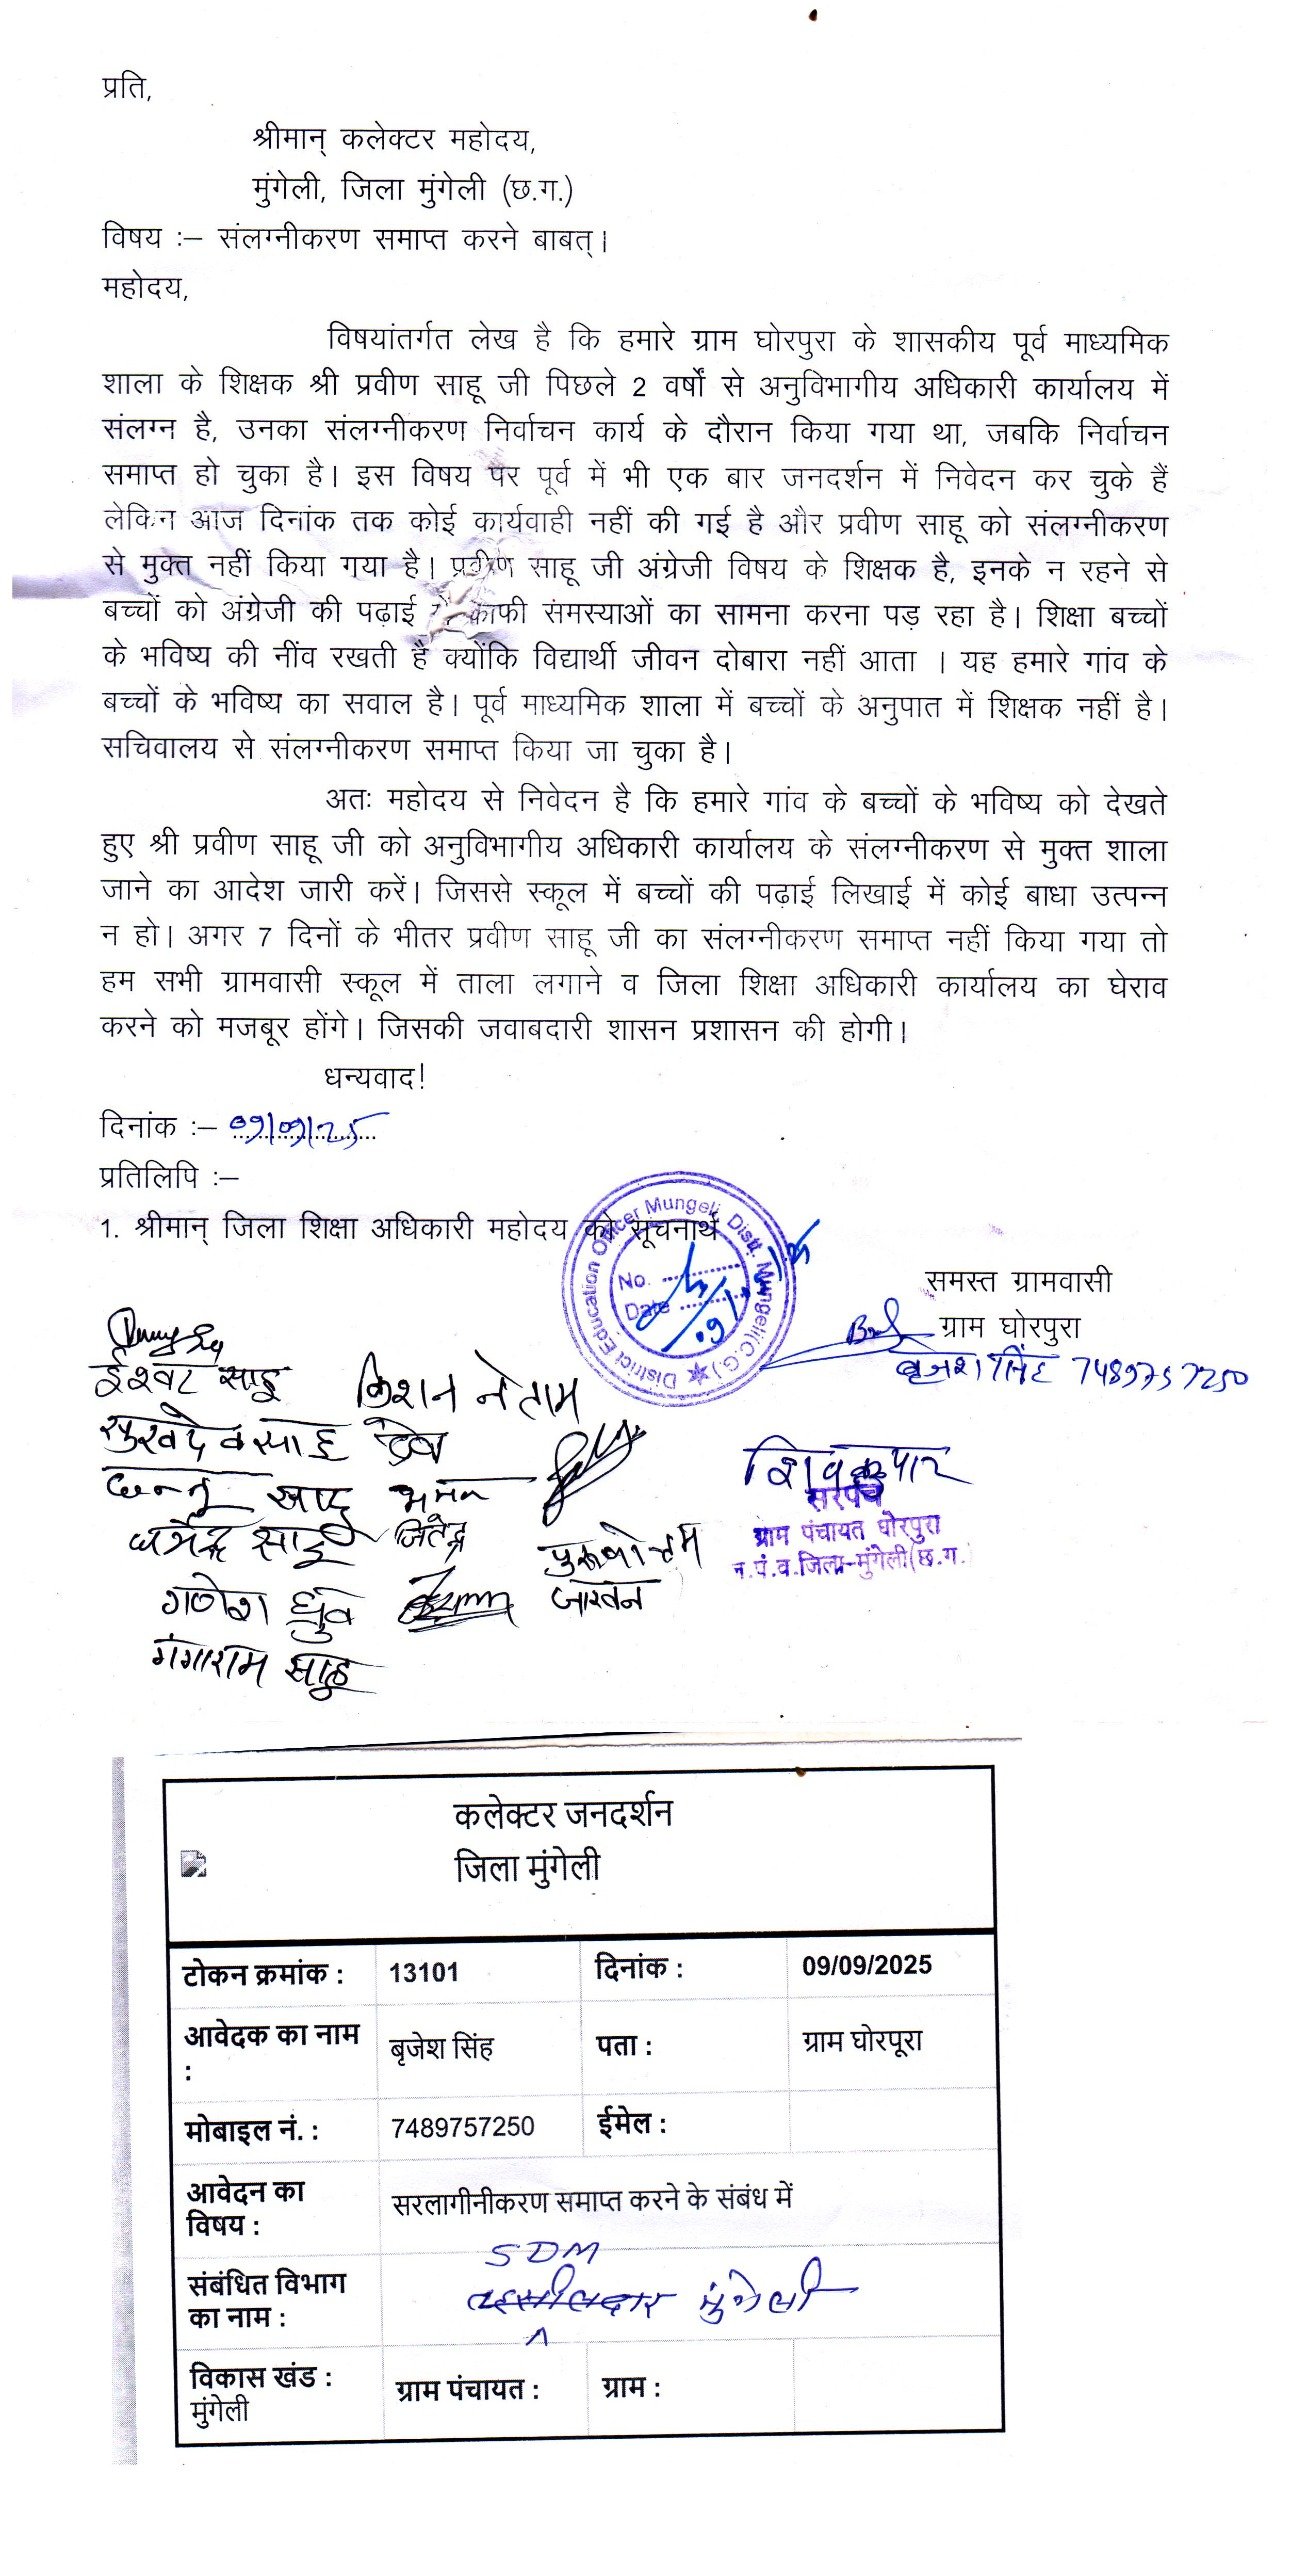 प्रति,
श्रीमान् कलेक्टर महोदय,
मुंगेली, जिला मुंगेली (छ.ग.)
विषय :– संलग्नीकरण समाप्त करने बाबत्।
महोदय,
विषयांतर्गत लेख है कि हमारे ग्राम घोरपुरा के शासकीय पूर्व माध्यमिक
शाला के शिक्षक श्री प्रवीण साहू जी पिछले 2 वर्षों से अनुविभागीय अधिकारी कार्यालय में
संलग्न है, उनका संलग्नीकरण निर्वाचन कार्य के दौरान किया गया था, जबकि निर्वाचन
समाप्त हो चुका है। इस विषय पर पूर्व में भी एक बार जनदर्शन में निवेदन कर चुके हैं
लेकिन आज दिनांक तक कोई कार्यवाही नहीं की गई है और प्रवीण साहू को संलग्नीकरण
से मुक्त नहीं किया गया है। प्रवीण साहू जी अंग्रेजी विषय के शिक्षक है, इनके न रहने से
बच्चों को अंग्रेजी की पढ़ाई में काफी समस्याओं का सामना करना पड़ रहा है। शिक्षा बच्चों
के भविष्य की नींव रखती है क्योंकि विद्यार्थी जीवन दोबारा नहीं आता । यह हमारे गांव के
बच्चों के भविष्य का सवाल है। पूर्व माध्यमिक शाला में बच्चों के अनुपात में शिक्षक नहीं है।
सचिवालय से संलग्नीकरण समाप्त किया जा चुका है।
अतः महोदय से निवेदन है कि हमारे गांव के बच्चों के भविष्य को देखते
हुए श्री प्रवीण साहू जी को अनुविभागीय अधिकारी कार्यालय के संलग्नीकरण से मुक्त शाला
जाने का आदेश जारी करें। जिससे स्कूल में बच्चों की पढ़ाई लिखाई में कोई बाधा उत्पन्न
न हो। अगर 7 दिनों के भीतर प्रवीण साहू जी का संलग्नीकरण समाप्त नहीं किया गया तो
हम सभी ग्रामवासी स्कूल में ताला लगाने व जिला शिक्षा अधिकारी कार्यालय का घेराव
करने को मजबूर होंगे। जिसकी जवाबदारी शासन प्रशासन की होगी।
धन्यवाद!
दिनांक :– 09/09/25
प्रतिलिपि :–
1. श्रीमान् जिला शिक्षा अधिकारी महोदय को सूचनार्थ
District Education Officer Mungeli Distt. Mungeli (C.G.)
No.
Date
समस्त ग्रामवासी
ग्राम घोरपुरा
बृजेश सिंह 7489757250
ईश्वर साहू किशन नेताम
सुखदेव साहू देव
छन्नू साहू
धर्मेन्द्र साहू जितेन्द्र पुरूषोत्तम
गणेश ध्रुव
गंगाराम साहू
शिवकुमार
सरपंच
ग्राम पंचायत घोरपुरा
न.पं.व.जिला-मुंगेली(छ.ग.)
कलेक्टर जनदर्शन
जिला मुंगेली
टोकन क्रमांक : 13101 दिनांक : 09/09/2025
आवेदक का नाम : बृजेश सिंह पता : ग्राम घोरपूरा
मोबाइल नं. : 7489757250 ईमेल :
आवेदन का विषय : सरलागीनीकरण समाप्त करने के संबंध में
SDM
संबंधित विभाग का नाम : तहसीलदार मुंगेली
विकास खंड : मुंगेली ग्राम पंचायत : ग्राम :